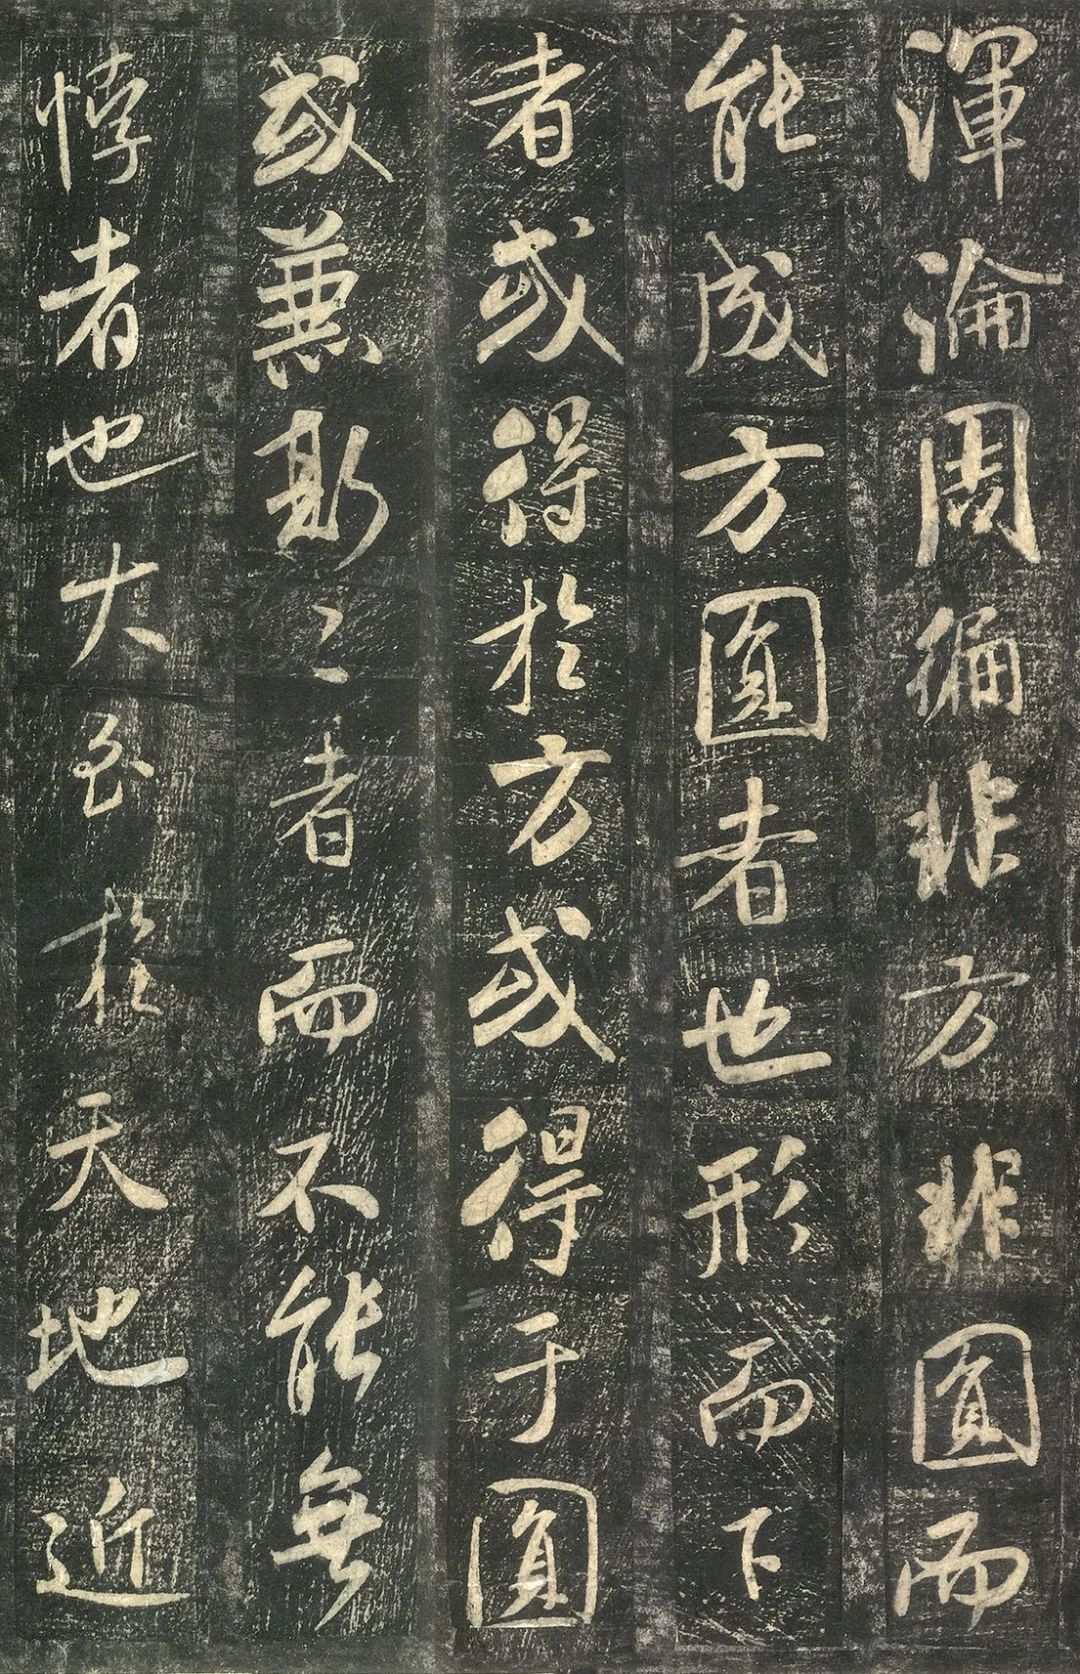 渾淪周徧非方非圓而
能成方圓者也形而下
者或得於方或得于圓
或兼斯二者而不能無
悖者也大至於天地近